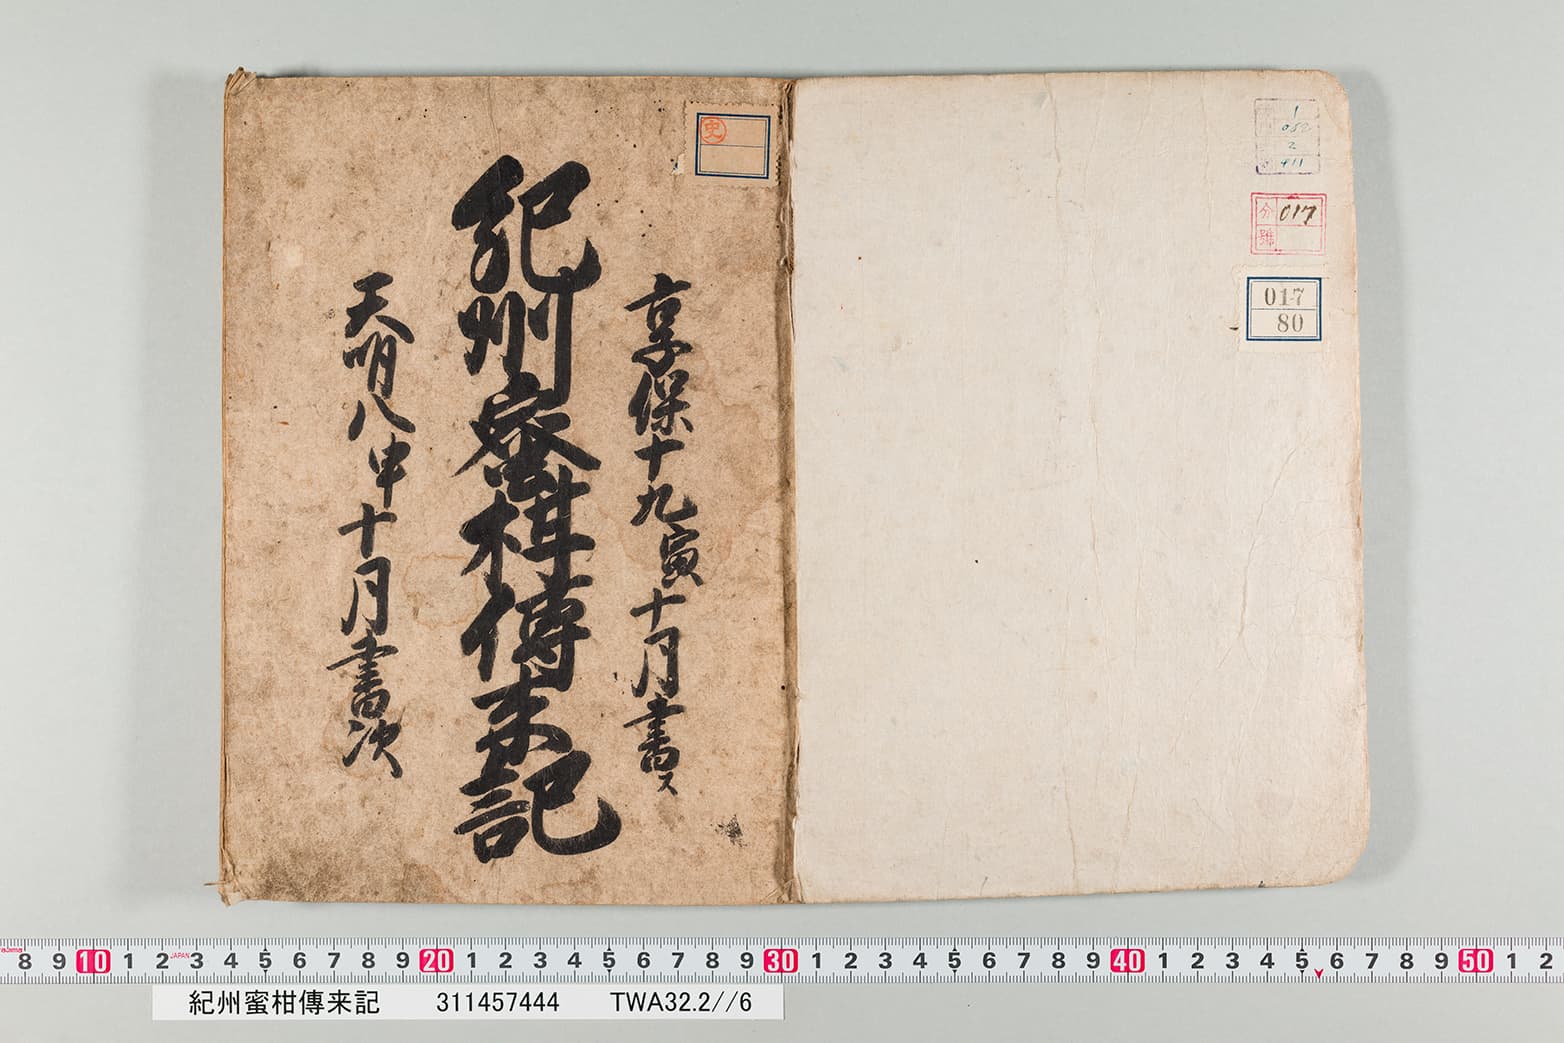 享保十九寅十月書ス
紀州蜜柑傳来記
天明八申十月書次
史
1
052
2
411
分類 017
017
80
8 9 10 1 2 JAPAN 3 4 5 6 7 8 9 20 1 2 3 4 5 6 7 8 9 30 1 2 3 4 5 6 7 8 9 40 1 2 3 4 5 6 7 8 9 50 1 2
紀州蜜柑傳来記 311457444 TWA32.2//6